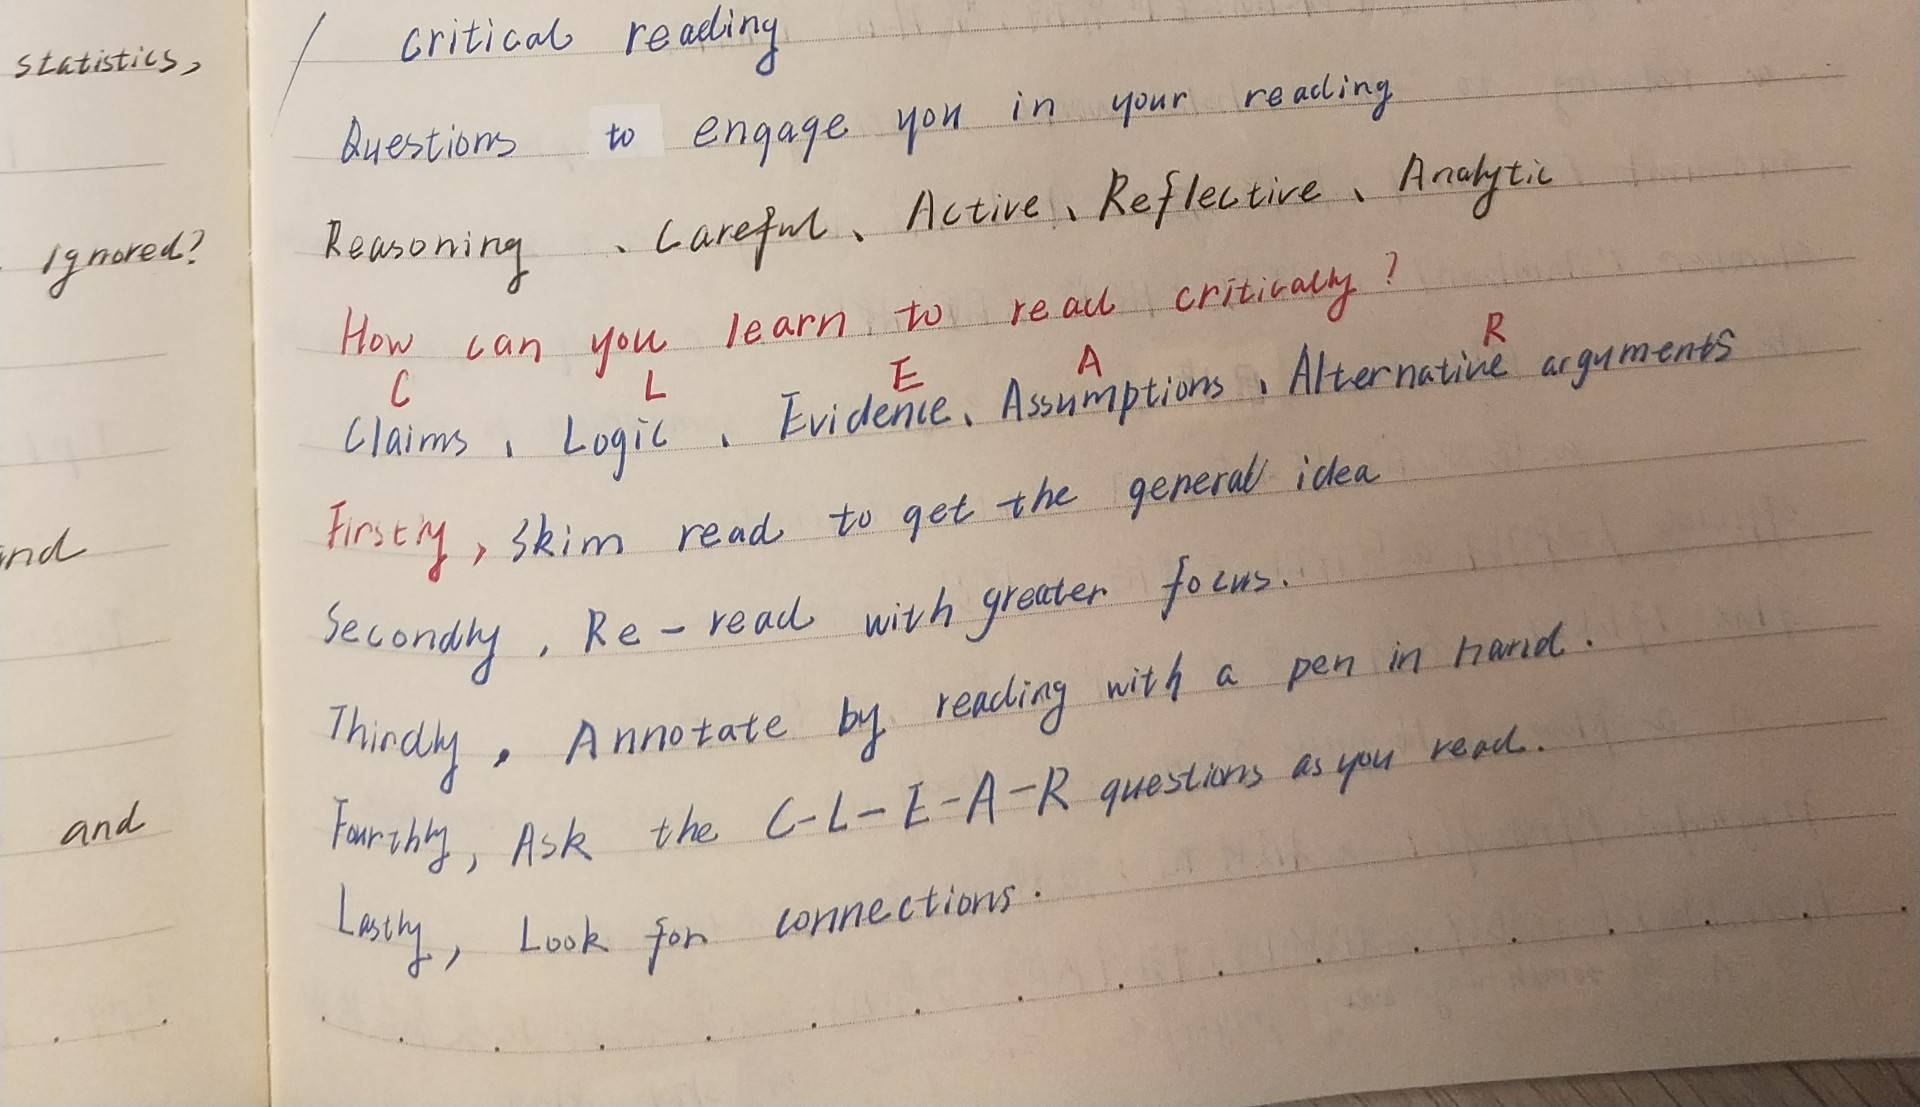 statistics,
Ignored?
and
critical reading
Questions to engage you in your reading
Reasoning 、Careful、Active、Reflective、Analytic
How can you learn to read critically?
C L E A R
Claims、Logic、Evidence、Assumptions、Alternative arguments
Firstly, Skim read to get the general idea
Secondly, Re-read with greater focus.
Thirdly, Annotate by reading with a pen in hand.
Fourthly, Ask the C-L-E-A-R questions as you read.
Lastly, Look for connections.